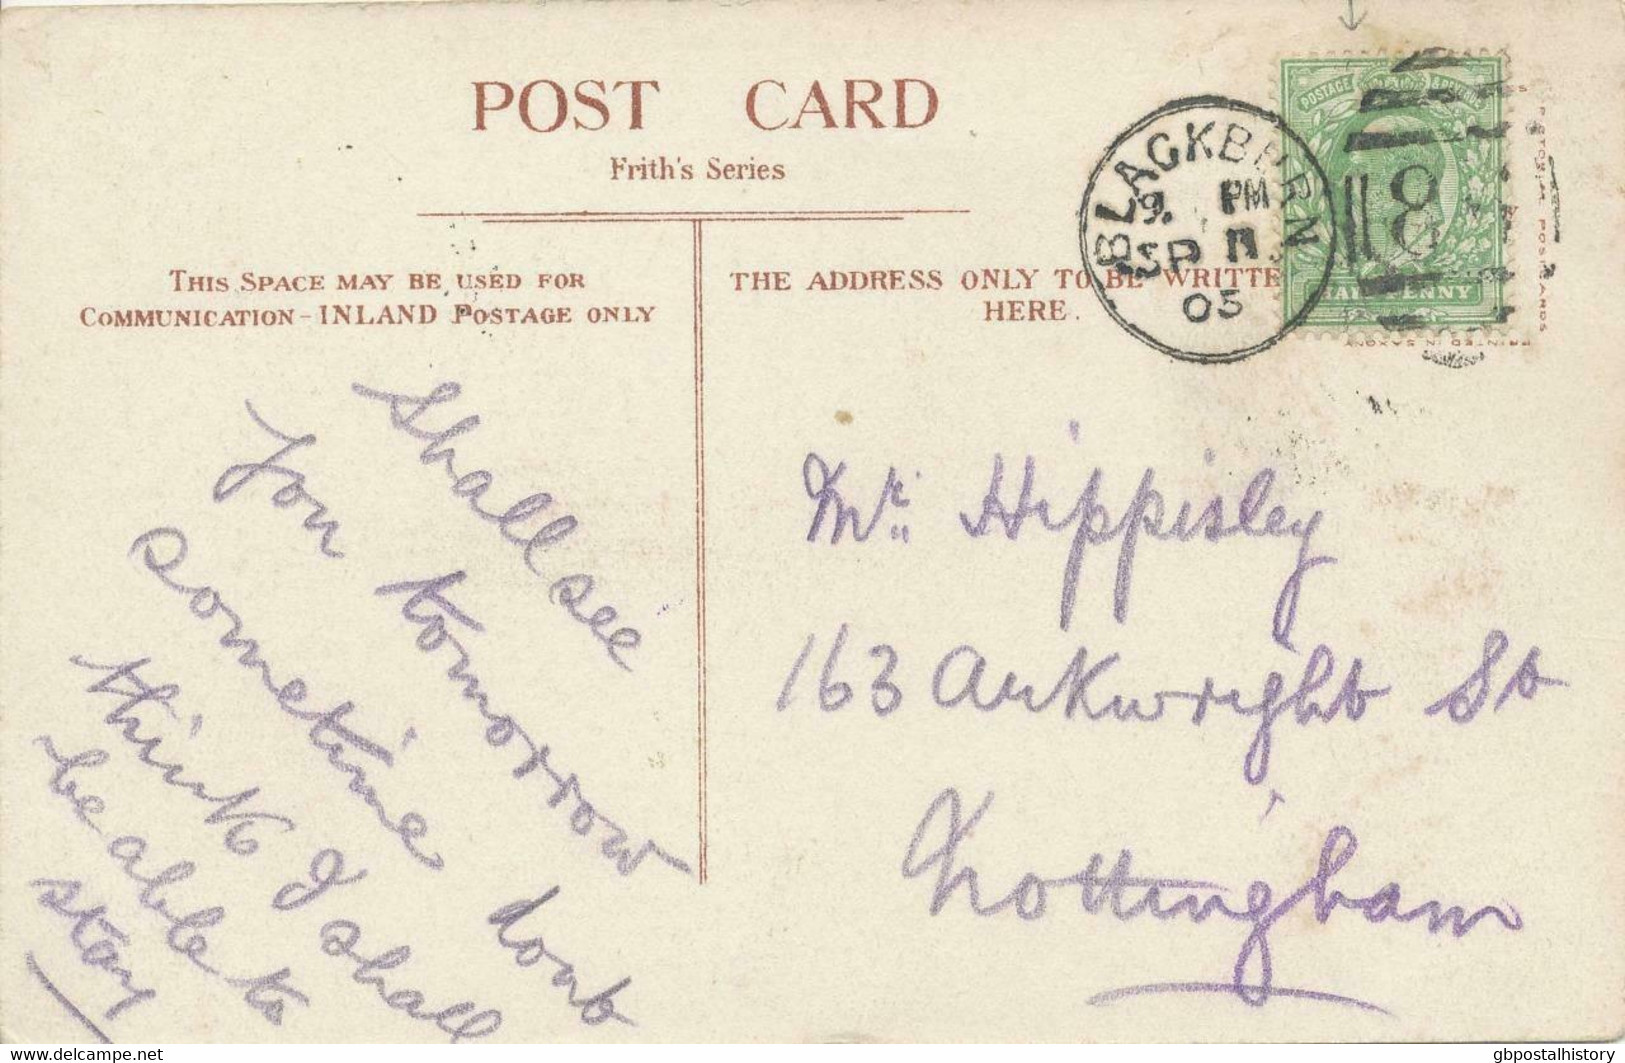 POST CARD
Frith's Series
THIS SPACE MAY BE USED FOR
COMMUNICATION - INLAND POSTAGE ONLY
THE ADDRESS ONLY TO BE WRITTE
HERE.
BLACKBURN
9. PM
SP 11
05
118
POSTAGE & REVENUE
HALFPENNY
PRINTED IN SAXONY
Shall see
you tomorrow
sometime dont
think I shall
be able to
stay
Mr. Hippisley
163 Arkwright St
Nottingham
www.delcampe.net
gbpostalhistory